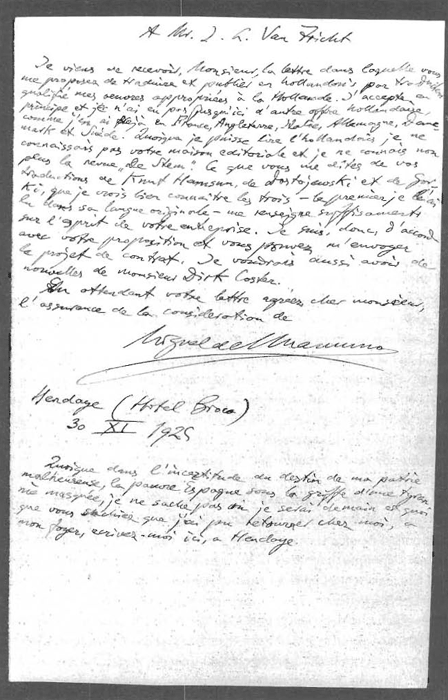 A Mr. J. L. Van Tricht
Je viens de recevoir, Monsieur, la lettre dans laquelle vous
me proposez de traduire et publier en hollandais, par traducteur
qualifié mes oeuvres appropriées à la Hollande. J'accepte en
principe et je n'ai eu jusqu'ici d'autre offre hollandaise
comme j'en ai déjà en France, Angleterre, Italie, Allemagne, Dane-
mark et Suède. Quoique je puisse lire l'hollandais je ne
connaissais pas votre maison editoriale et je ne connais non
plus la revue "De Stem". Ce que vous me dites de vos
traductions de Knut Hamsun, de Dostojewski et de Gor-
ki, que je crois bien connaître les trois - le premier je l'ai
lu dans sa langue originale - me renseigne suffisamment
sur l'esprit de votre entreprise. Je suis, donc, d'accord
avec votre proposition et vous pouvez m'envoyer
le projet de contrat. Je voudrais aussi avoir de
nouvelles de monsieur Dirk Coster.
En attendant votre lettre agréez, cher monsieur,
l'assurance de la consideration de
Miguel de Unamuno
Hendaye (Hotel Broca)
30 XI 1925
Quoique dans l'incertitude du destin de ma patrie
malheureuse, la pauvre Espagne sous la griffe d'une tyran-
nie masquée, je ne sache pas où je serai demain et quoi
que vous sachiez que j'ai pu retourner chez moi, a
mon foyer, ecrivez-moi ici, a Hendaye.